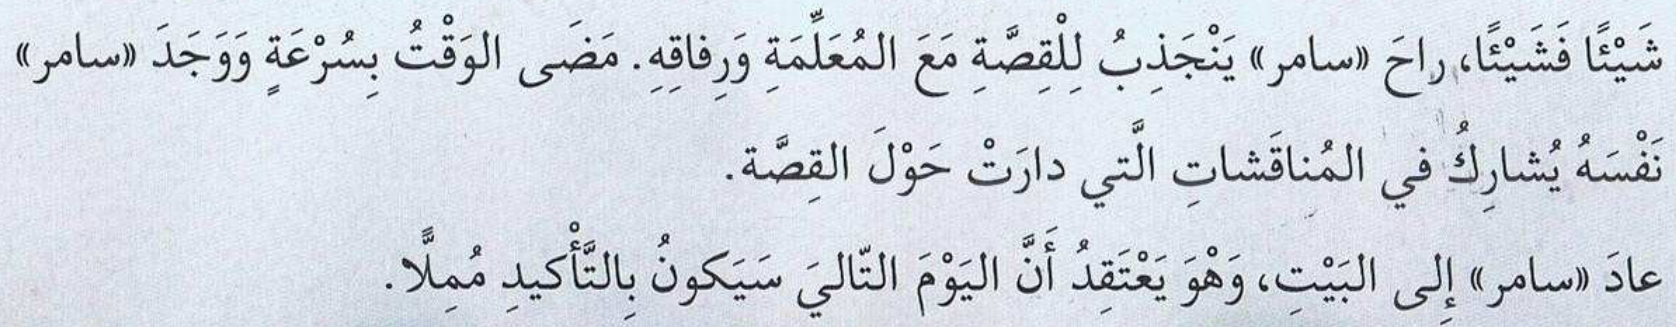 شَيْئًا فَشَيْئًا، راحَ «سامر» يَنْجَذِبُ لِلْقِصَّةِ مَعَ المُعَلِّمَةِ وَرِفاقِهِ. مَضَى الوَقْتُ بِسُرْعَةٍ وَوَجَدَ «سامر»
نَفْسَهُ يُشارِكُ في المُناقَشاتِ الَّتي دارَتْ حَوْلَ القِصَّة.
عادَ «سامر» إِلى البَيْتِ، وَهْوَ يَعْتَقِدُ أَنَّ اليَوْمَ التّاليَ سَيَكونُ بِالتَّأْكيدِ مُمِلًّا.